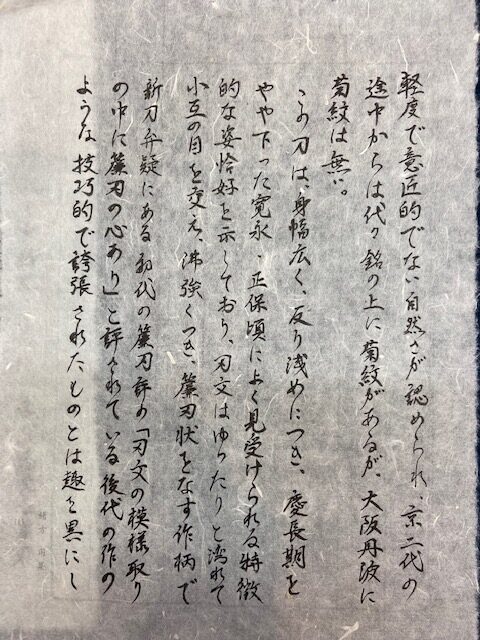 軽度で意匠的でない自然さが認められ、京二代の
途中からは代々銘の上に菊紋があるが、大阪丹波に
菊紋は無い。
この刀は、身幅広く、反り浅めにつき、慶長期を
やや下った寛永、正保頃によく見受けられる特徴
的な姿恰好を示しており、刃文はゆったりと湾れて
小互の目を交え、沸強くつき、簾刃状をなす作柄で
新刀弁疑にある初代の簾刃評の「刃文の模様取り
の中に簾刃の心あり」と評されている後代の作の
ような技巧的で誇張されたものとは趣を異にし